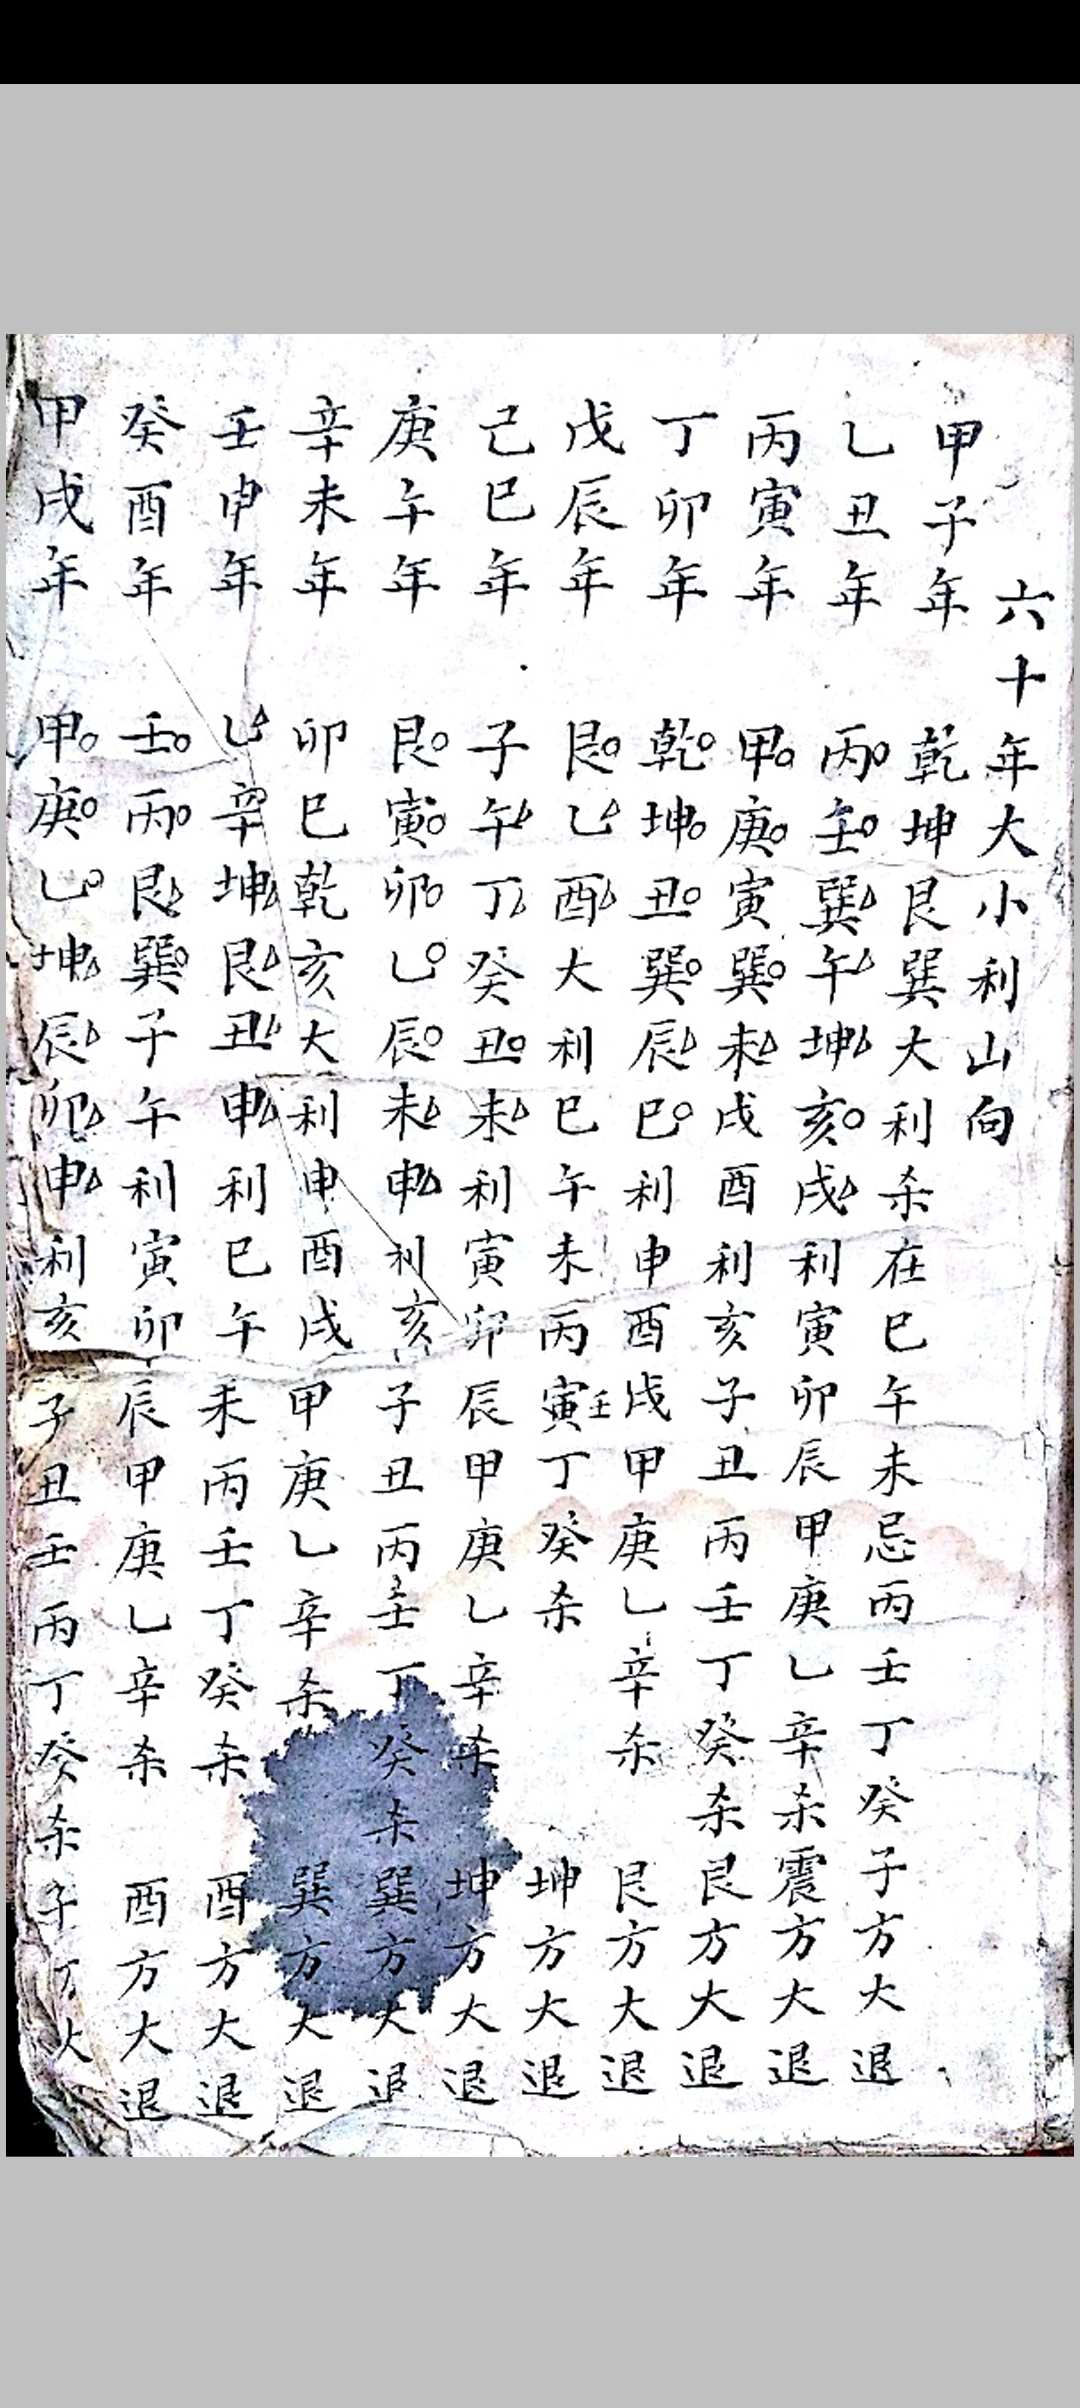 六十年大小利山向
甲子年 乾坤艮巽大利杀在巳午未忌丙壬丁癸子方大退
乙丑年 丙壬巽午坤亥戌利寅卯辰甲庚乙辛杀震方大退
丙寅年 甲庚寅巽未戌酉利亥子丑丙壬丁癸杀艮方大退
丁卯年 乾坤丑巽辰巳利申酉戌甲庚乙辛杀艮方大退
戊辰年 艮乙酉大利巳午未丙壬寅丁癸杀坤方大退
己巳年 子午丁癸丑未利寅卯辰甲庚乙辛杀坤方大退
庚午年 艮寅卯乙辰未申利亥子丑丙壬丁癸杀巽方大退
辛未年 卯巳乾亥大利申酉戌甲庚乙辛杀巽方大退
壬申年 乙辛坤艮丑申利巳午未丙壬丁癸杀酉方大退
癸酉年 壬丙艮巽子午利寅卯辰甲庚乙辛杀酉方大退
甲戌年 甲庚乙坤辰卯申利亥子丑壬丙丁癸杀子大